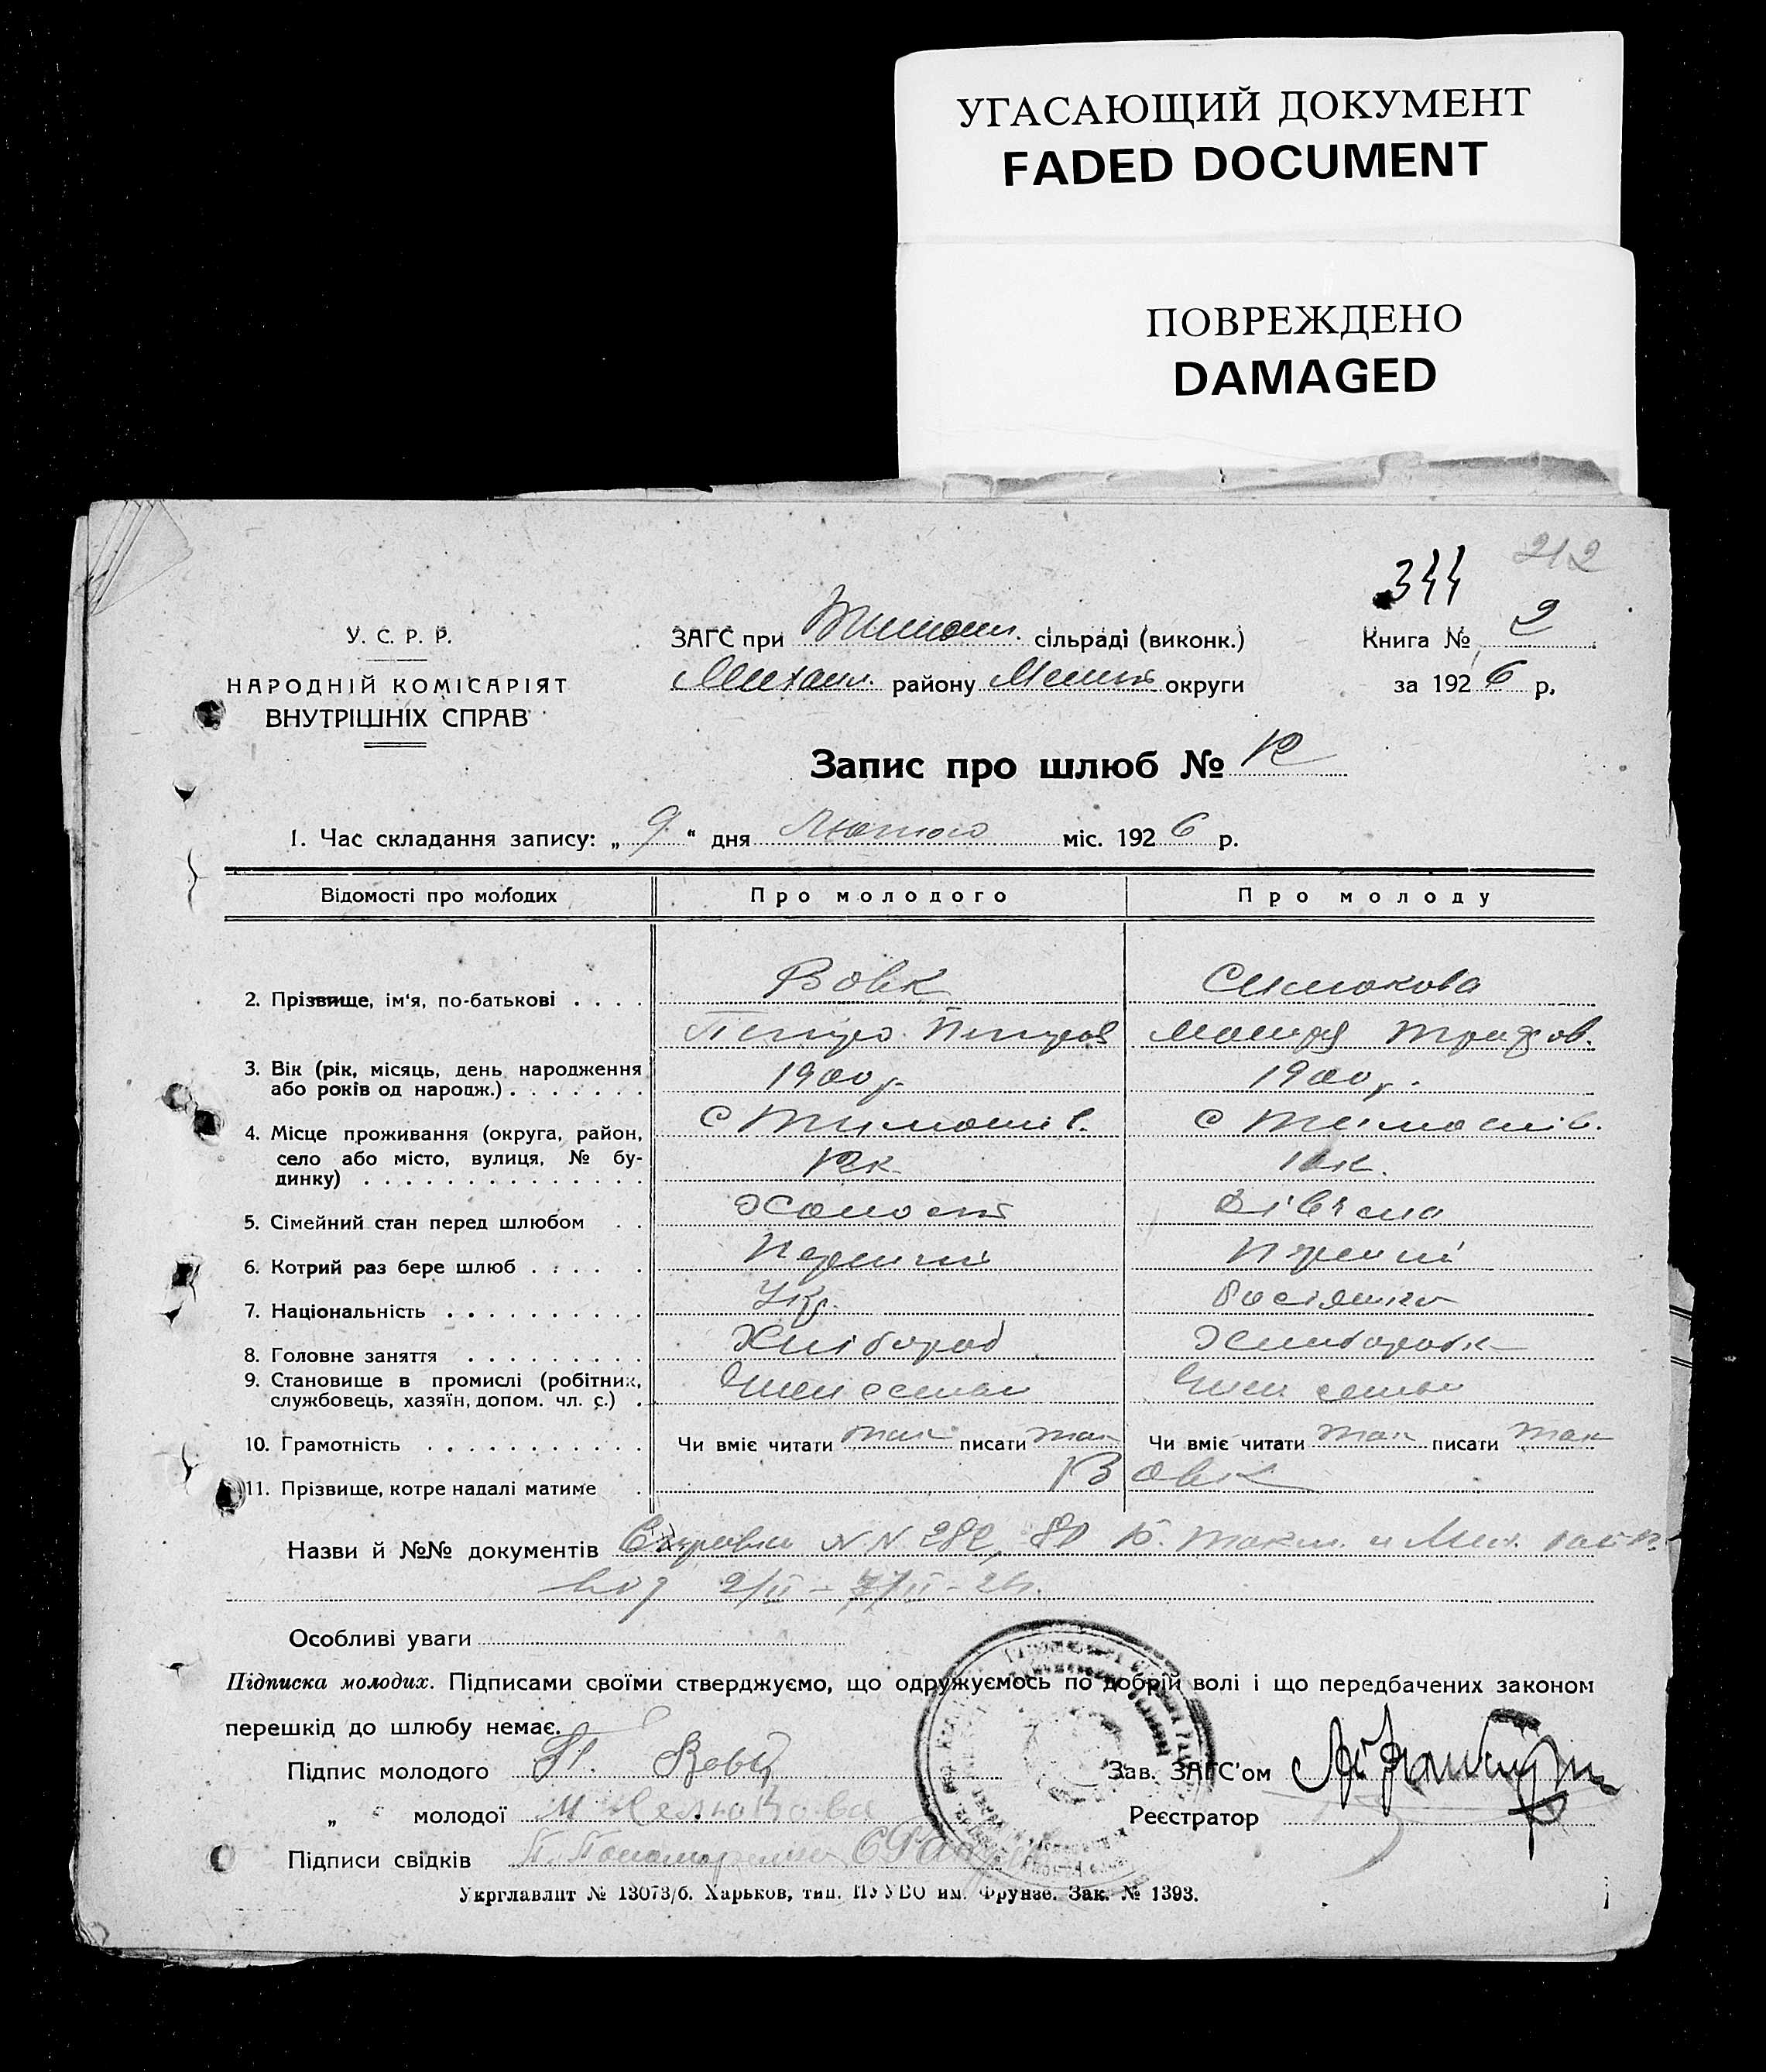 УГАСАЮЩИЙ ДОКУМЕНТ
FADED DOCUMENT
ПОВРЕЖДЕНО
DAMAGED
344 212
У. С. Р. Р.
НАРОДНІЙ КОМІСАРІЯТ
ВНУТРІШНІХ СПРАВ
ЗАГС при Тимош. сільраді (виконк.)
Михайл. району Меліт. округи
Книга № 2
за 1926 р.
Запис про шлюб № 12
1. Час складання запису: „ 9 “ дня Лютого міс. 1926 р.
Відомості про молодих Про молодого Про молоду
2. Прізвище, ім'я, по-батькові . . . . Вовк
Петро Петров
3. Вік (рік, місяць, день народження або років од народж.) . . . . . . . 1900 р. 1900 р.
4. Місце проживання (округа, район, село або місто, вулиця, № будинку) . . . . . . . . . . . . . . С Тимошів. С Тимошів.
5. Сімейний стан перед шлюбом . . Холост Дівчина
6. Котрий раз бере шлюб . . . . . Перший Перший
7. Національність . . . . . . . . . Укр. Росіянка
8. Головне заняття . . . . . . . . . Хлібороб Хлиборобк
9. Становище в промислі (робітник, службовець, хазяїн, допом. чл. с.) . Член семьи Член семьи
10. Грамотність . . . . . . . . . . . Чи вміє читати так писати так Чи вміє читати так писати так
11. Прізвище, котре надалі матиме . Вовк
Назви й №№ документів Справки N N 282, 80
від 2/II – 7/II – 26.
Особливі уваги
Підписка молодих. Підписами своїми стверджуємо, що одружуємось по добрій волі і що передбачених законом
перешкід до шлюбу немає.
Підпис молодого П. Вовк
„ молодої М
Підписи свідків П. Пономаренко
Зав. ЗАГС'ом
Реєстратор
Укрглавліт № 13073/б. Харьков, тип. ПУУВО им. Фрунзе. Зак. № 1393.